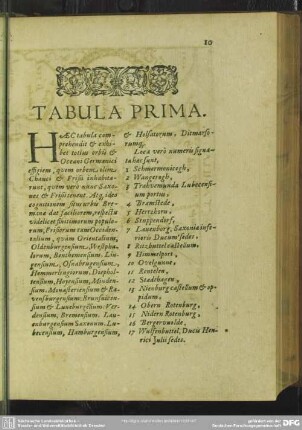 10
TABULA PRIMA.
HÆC tabula com-
prehendit & exhi-
bet totius orbis &
Oceani Germanici
effigiem, quem orbem, olim,
Chauci & Frisii inhabita-
runt, quem verò nunc Saxo-
nes & Frisii tenent. Atq, idea
cognitionem situs urbis Bre-
mina dat faciliorem, respectu
videlicet finitimorum populo-
rum, Frisiorum tam Occiden-
talium, quàm Orientalium,
Oldenburgensium, Westpha-
lorum, Benthemensium, Lin-
gensium, Osnaburgensium,
Hemmerlingiorum, Diephol-
tensium, Hoyensium, Minden-
sium, Monasteriensium & Ra-
vensburgensium: Brunsuicen-
sium & Luneburgensium: Ver-
densium, Bremensium. Lau-
enburgensium Saxonum. Lu-
becensium, Hamburgensium,
& Holsatorum, Ditmarso-
rumq,
Loca verò numeris signa-
ta hæc sunt,
1 Schmermenicogh,
2 Wangerogh,
3 Trahvemunda Lubecensi-
um portus,
4 Bramstede,
5 Herzhorn,
6 Stoffendorf,
7 Lauenburg, Saxonia infe-
rioris Ducum sedes,
8 Ritzbuttel castellum.
9 Himmelport,
10 Ovelgunne,
11 Rentelen,
12 Stadthagen,
13 Nienburg castellum & op-
pidum,
14 Obern Rotenburg,
15 Nidern Rotenburg,
16 Bergervoelde,
17 Wulfenbuttel, Ducis Hen-
rici Julii sedes.